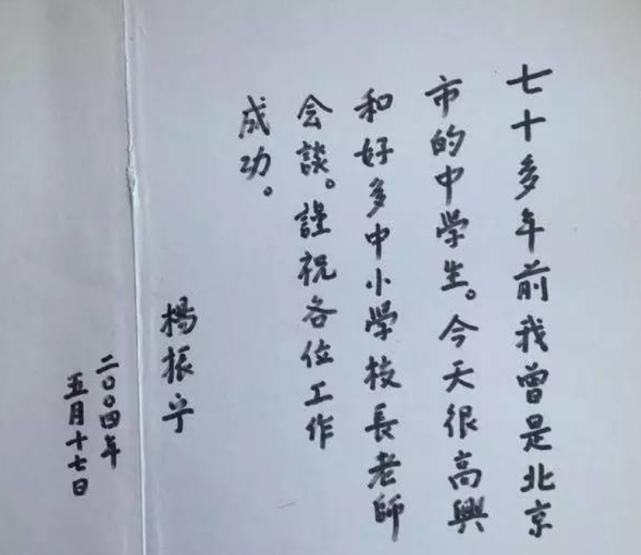 七十多年前我曾是北京
市的中学生。今天很高興
和好多中小学校長老師
会談。謹祝各位工作
成功。
楊振宁
二〇〇四年
五月十七日